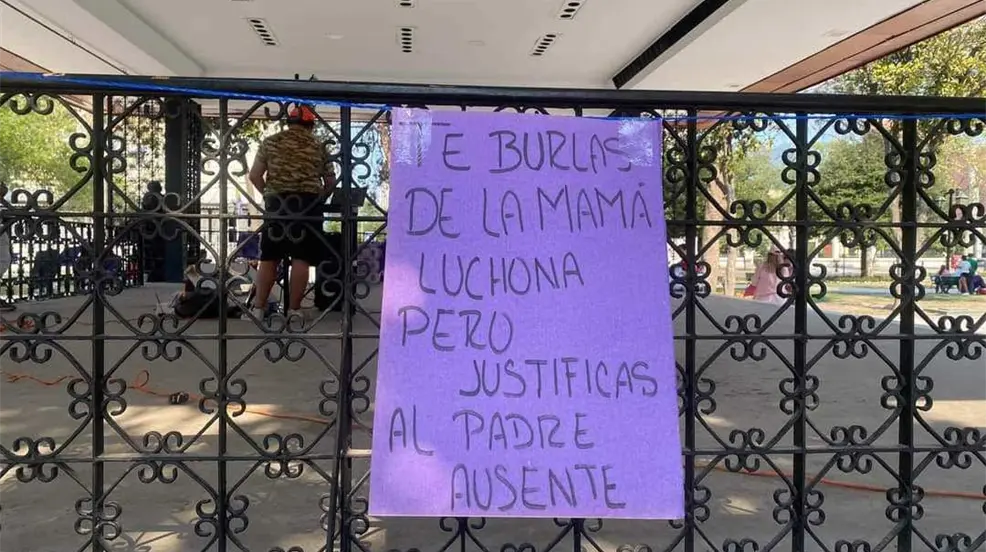 TE BURLAS
DE LA MAMÁ
LUCHONA
PERO
JUSTIFICAS
AL PADRE
AUSENTE